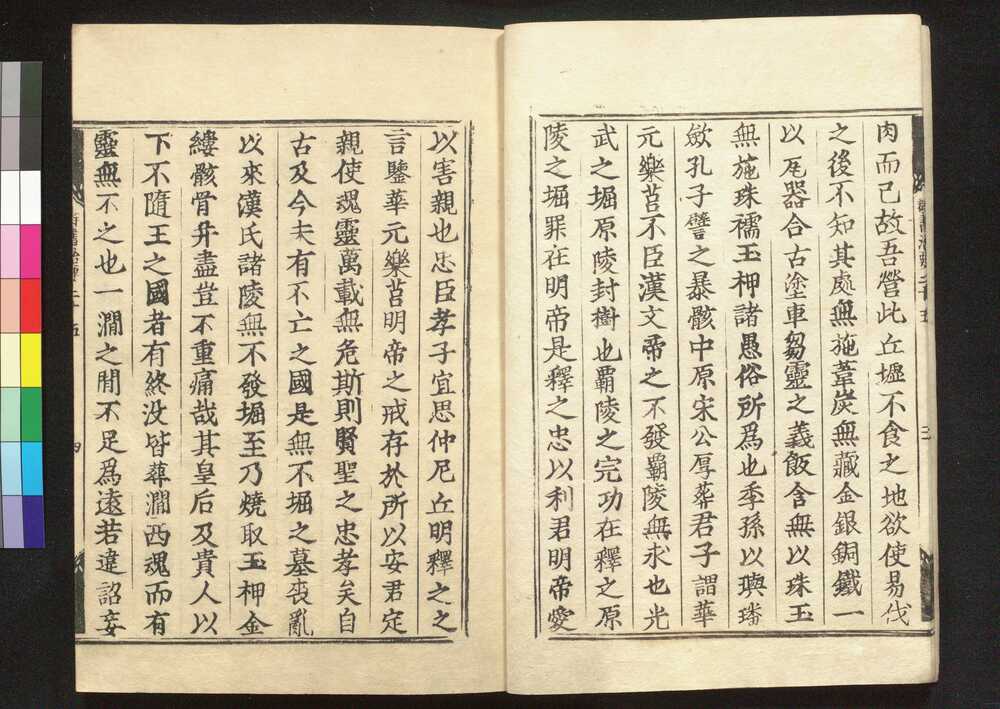 肉而已故吾營此丘墟不食之地欲使易代
之後不知其處無施葦炭無藏金銀銅鐵一
以瓦器合古塗車芻靈之義飯含無以珠玉
無施珠襦玉柙諸愚俗所爲也季孫以璵璠
斂孔子譬之暴骸中原宋公厚葬君子謂華
元樂莒不臣漢文帝之不發霸陵無求也光
武之堀原陵封樹也霸陵之完功在釋之原
陵之堀罪在明帝是釋之忠以利君明帝愛
以害親也忠臣孝子宜思仲尼丘明釋之之
言鑒華元樂莒明帝之戒存於所以安君定
親使魂靈萬載無危斯則賢聖之忠孝矣自
古及今未有不亡之國是無不堀之墓喪亂
以來漢氏諸陵無不發堀至乃燒取玉柙金
縷骸骨并盡豈不重痛哉其皇后及貴人以
下不隨王之國者有終没皆葬澗西魂而有
靈無不之也一澗之間不足爲遠若違詔妄
群書治要二十五
三
群書治要二十五
四